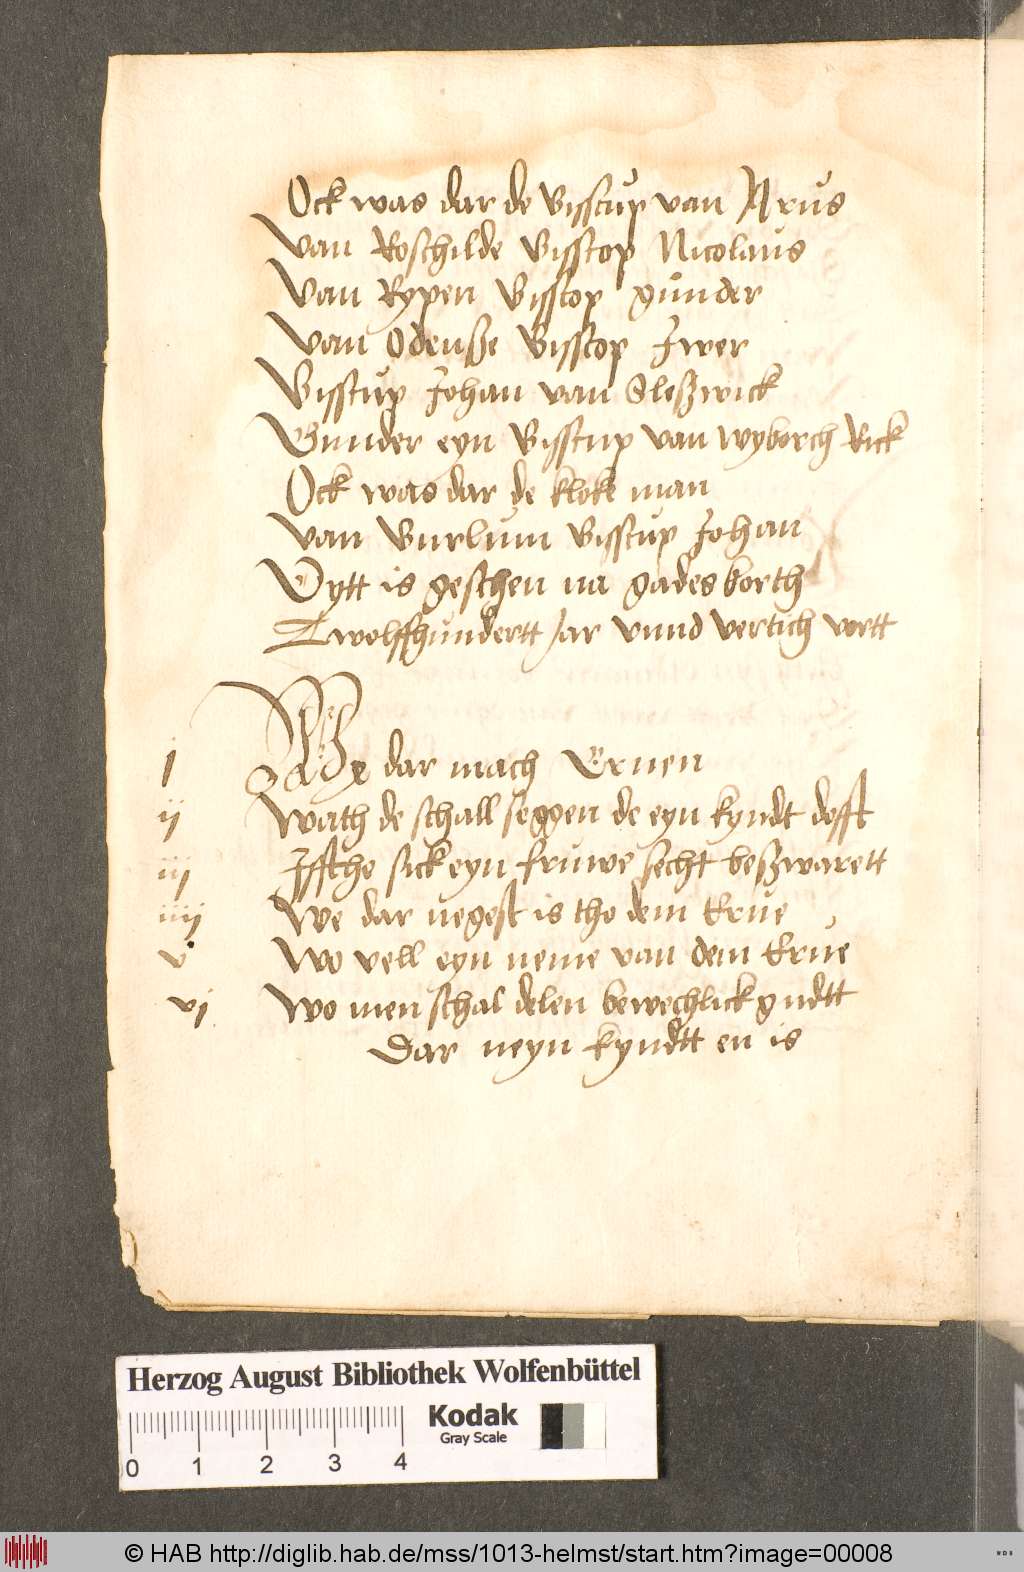 Ock was dar de Bisscup van Arus
Van Roschilde Bisscop Nicolaus
Van Rypen Bisscop gunder
Van Odenße Bisscop Iwer
Bisscup Johan van Sleßwick
Gunder eyn Bisscup van wyborch Rick
Ock was dar de kloke man
Van Burlum Bisscup Johan
Dytt is geschen na gades borth
Twolffhundertt jar vnnd vertich vortt
i We dar mach Eruen
ii Wath de schall seggen de eyn kyndt dofft
iii Iffthe sick eyn fruwe secht beßwarett
iiii We dar negest is tho dem Erue
v Wo vell eyn neme van dem Erue
vi Wo men schal delen bewechlick gudtt
Dar neyn kyndtt en is
Herzog August Bibliothek Wolfenbüttel
Kodak
Gray Scale
0 1 2 3 4
© HAB http://diglib.hab.de/mss/1013-helmst/start.htm?image=00008